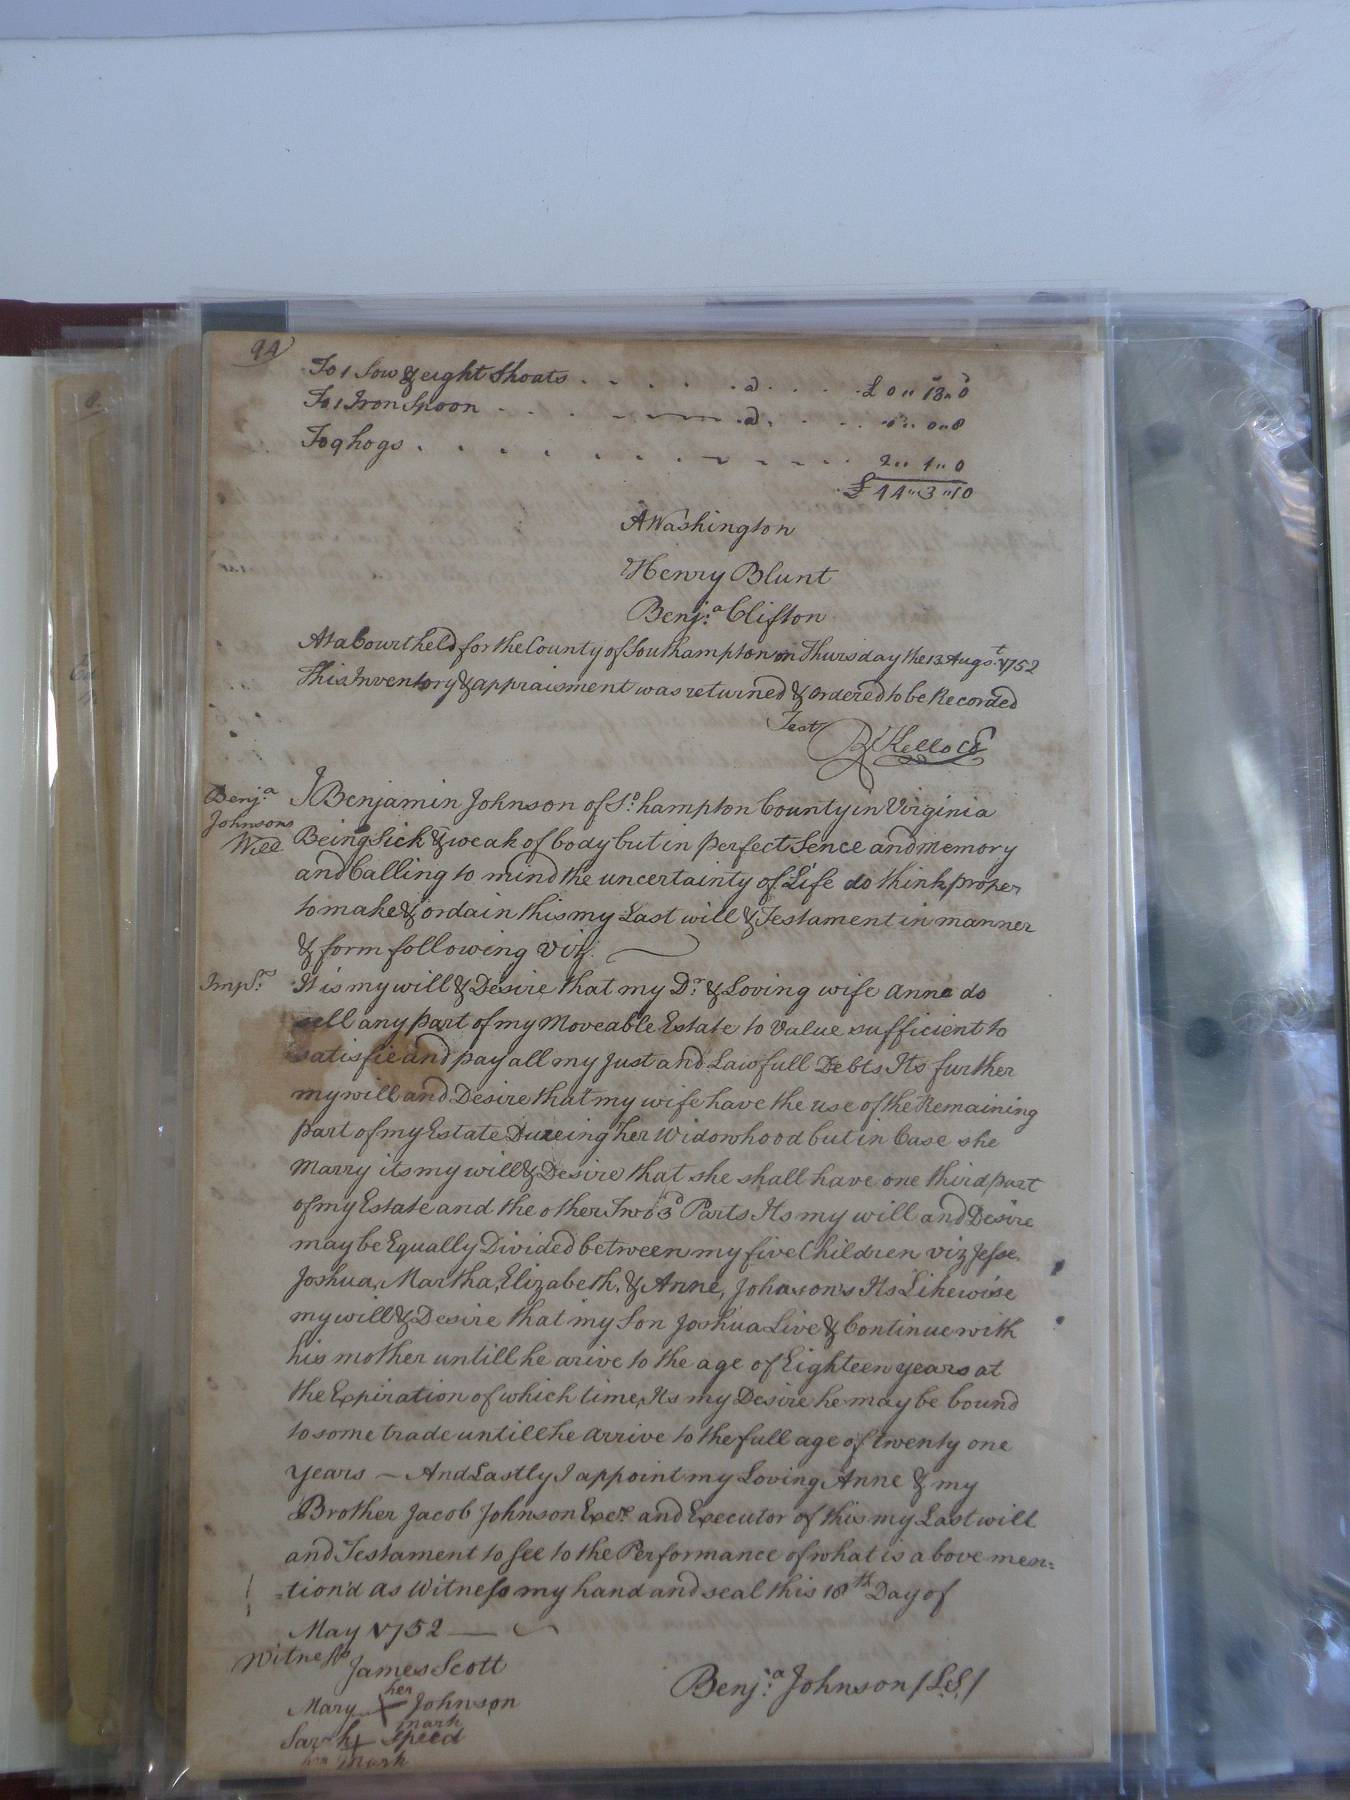 94
To 1 Sow & eight Shoats . . . . . a . . . . £ 0 " 18 " 0
To 1 Iron Spoon . . . . a . . . . 0 " 0 " 8
To 9 hogs . . . . . . . . . 2 " 1 " 0
£ 44 " 3 " 10
A Washington
Henry Blunt
Benj.a Clifton
At a Court held for the County of Southampton on Thursday the 13 Augs.t 1752
This Inventory & appraisment was returned & ordered to be Recorded
Test
R Kelloc
Benj.a Johnsons Will
I Benjamin Johnson of So.hampton County in Virginia
Being Sick & weak of body but in perfect Sence and memory
and Calling to mind the uncertainty of Life do think proper
to make & ordain this my Last will & Testament in manner
& form following viz.
Imp.s It is my will & Desire that my Dr. & Loving wife Anne do
sell any part of my Moveable Estate to Value sufficient to
satisfie and pay all my Just and Lawfull Debts Its further
my will and Desire that my wife have the use of the Remaining
part of my Estate Dureing her Widowhood but in Case she
Marry its my will & Desire that she shall have one third part
of my Estate and the other Two 3d Parts Its my will and Desire
may be Equally Divided between my five Children viz Jesse
Joshua, Martha, Elizabeth, & Anne, Johnson's Its Likewise
my will & Desire that my Son Joshua Live & Continue with
his mother untill he arive to the age of Eighteen years at
the Expiration of which time, Its my Desire he may be bound
to some trade untill he Arrive to the full age of twenty one
years — And Lastly I appoint my Loving Anne & my
Brother Jacob Johnson Exex. and Executor of this my Last will
and Testament to See to the Performance of what is above men=
=tion'd As Witness my hand and seal this 18th Day of
May 1752 —
Witness
James Scott
Mary her X mark Johnson
Sarah X Speed
her mark
Benj.a Johnson / L.S. /